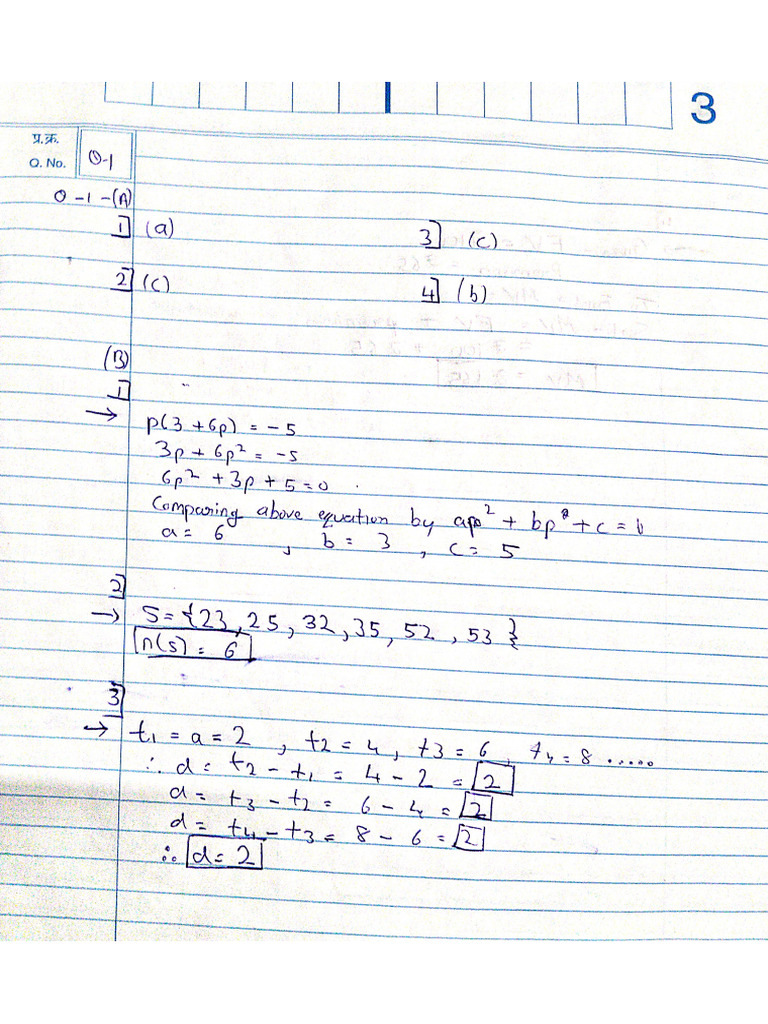 3
प्र.क्र.
Q. No. Q-1
Q-1-(A)
1] (a) 3] (c)
2] (c) 4] (b)
(B)
1]
→ p(3 + 6p) = -5
3p + 6p² = -5
6p² + 3p + 5 = 0
Comparing above equation by ap² + bp + c = 0
a = 6 , b = 3 , c = 5
2]
→ S = {23, 25, 32, 35, 52, 53}
n(s) = 6
3]
→ t₁ = a = 2 , t2 = 4, t3 = 6, t4 = 8 .....
∴ d = t₂ - t₁ = 4 - 2 = 2
d = t₃ - t₂ = 6 - 4 = 2
d = t₄ - t₃ = 8 - 6 = 2
∴ d = 2